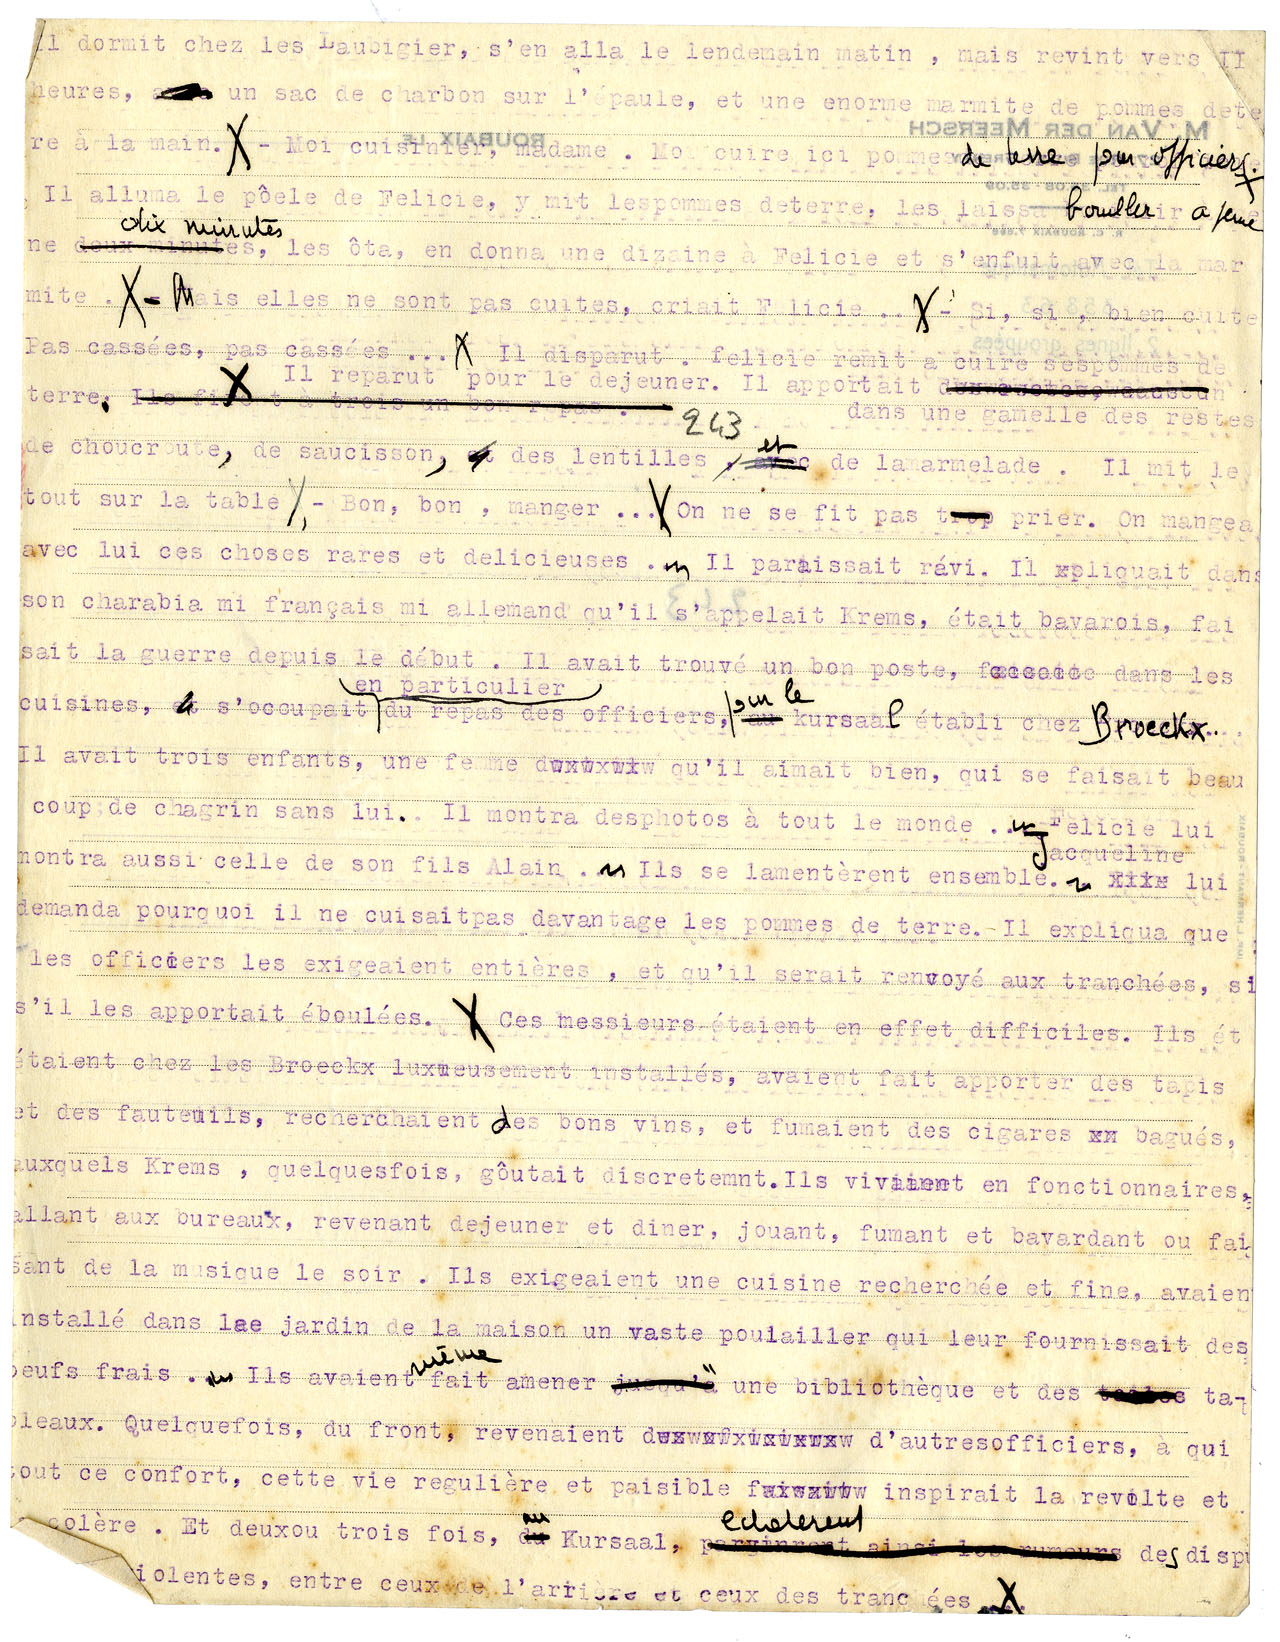 Il dormit chez les Laubigier, s'en alla le lendemain matin , mais revint vers II
heures, un sac de charbon sur l'épaule, et une enorme marmite de pommes dete
re à la main. X - Moi cuisinier, madame . Moi cuire ici pommes de terre pour officiers. X
Il alluma le pôele de Felicie, y mit lespommes deterre, les laissa bouillir a peine
dix minutes
ne deux minutes, les ôta, en donna une dizaine à Felicie et s'enfuit avec la mar
mite . X - Mais elles ne sont pas cuites, criait Felicie .. X - Si, si , bien cuite
Pas cassées, pas cassées ... X Il disparut . felicie remit a cuire sespommes de
X Il reparut pour le dejeuner. Il apportait
terre. Ils firent à trois un bon repas . dans une gamelle des restes
243
de choucroute, de saucisson, et des lentilles , avec et de lamarmelade . Il mit le
tout sur la table X - Bon, bon , manger ... X On ne se fit pas trop prier. On mangea
avec lui ces choses rares et delicieuses . Il paraissait rávi. Il xpliquait dans
son charabia mi français mi allemand qu'il s'appelait Krems, était bavarois, fai
sait la guerre depuis le début . Il avait trouvé un bon poste, dans les
en particulier
cuisines, et s'occupait du repas des officiers, pour le au kursaal établi chez Broeckx..
Il avait trois enfants, une femme qu'il aimait bien, qui se faisait beau
coup de chagrin sans lui.. Il montra desphotos à tout le monde .. Felicie lui
Jacqueline
montra aussi celle de son fils Alain . Ils se lamentèrent ensemble. lui
demanda pourquoi il ne cuisaitpas davantage les pommes de terre. Il expliqua que
les officiers les exigeaient entières , et qu'il serait renvoyé aux tranchées, si
s'il les apportait éboulées. X Ces messieurs étaient en effet difficiles. Ils ét
étaient chez les Broeckx luxueusement installés, avaient fait apporter des tapis
et des fauteuils, recherchaient des bons vins, et fumaient des cigares xx bagués,
auxquels Krems , quelquesfois, gôutait discretemnt.Ils vivaient en fonctionnaires,
allant aux bureaux, revenant dejeuner et diner, jouant, fumant et bavardant ou fai
sant de la musique le soir . Ils exigeaient une cuisine recherchée et fine, avaien
installé dans lae jardin de la maison un vaste poulailler qui leur fournissait des
oeufs frais . Ils avaient même fait amener jusqu'à une bibliothèque et des ta-
bleaux. Quelquefois, du front, revenaient d'autresofficiers, à qui
tout ce confort, cette vie regulière et paisible inspirait la revolte et
colère . Et deuxou trois fois, du au Kursaal, parvinrent ainsi les rumeurs eclaterent des dispu
iolentes, entre ceux de l'arrière et ceux des tranchées X
M. VAN DER MEERSCH
ROUBAIX
2 lignes groupées